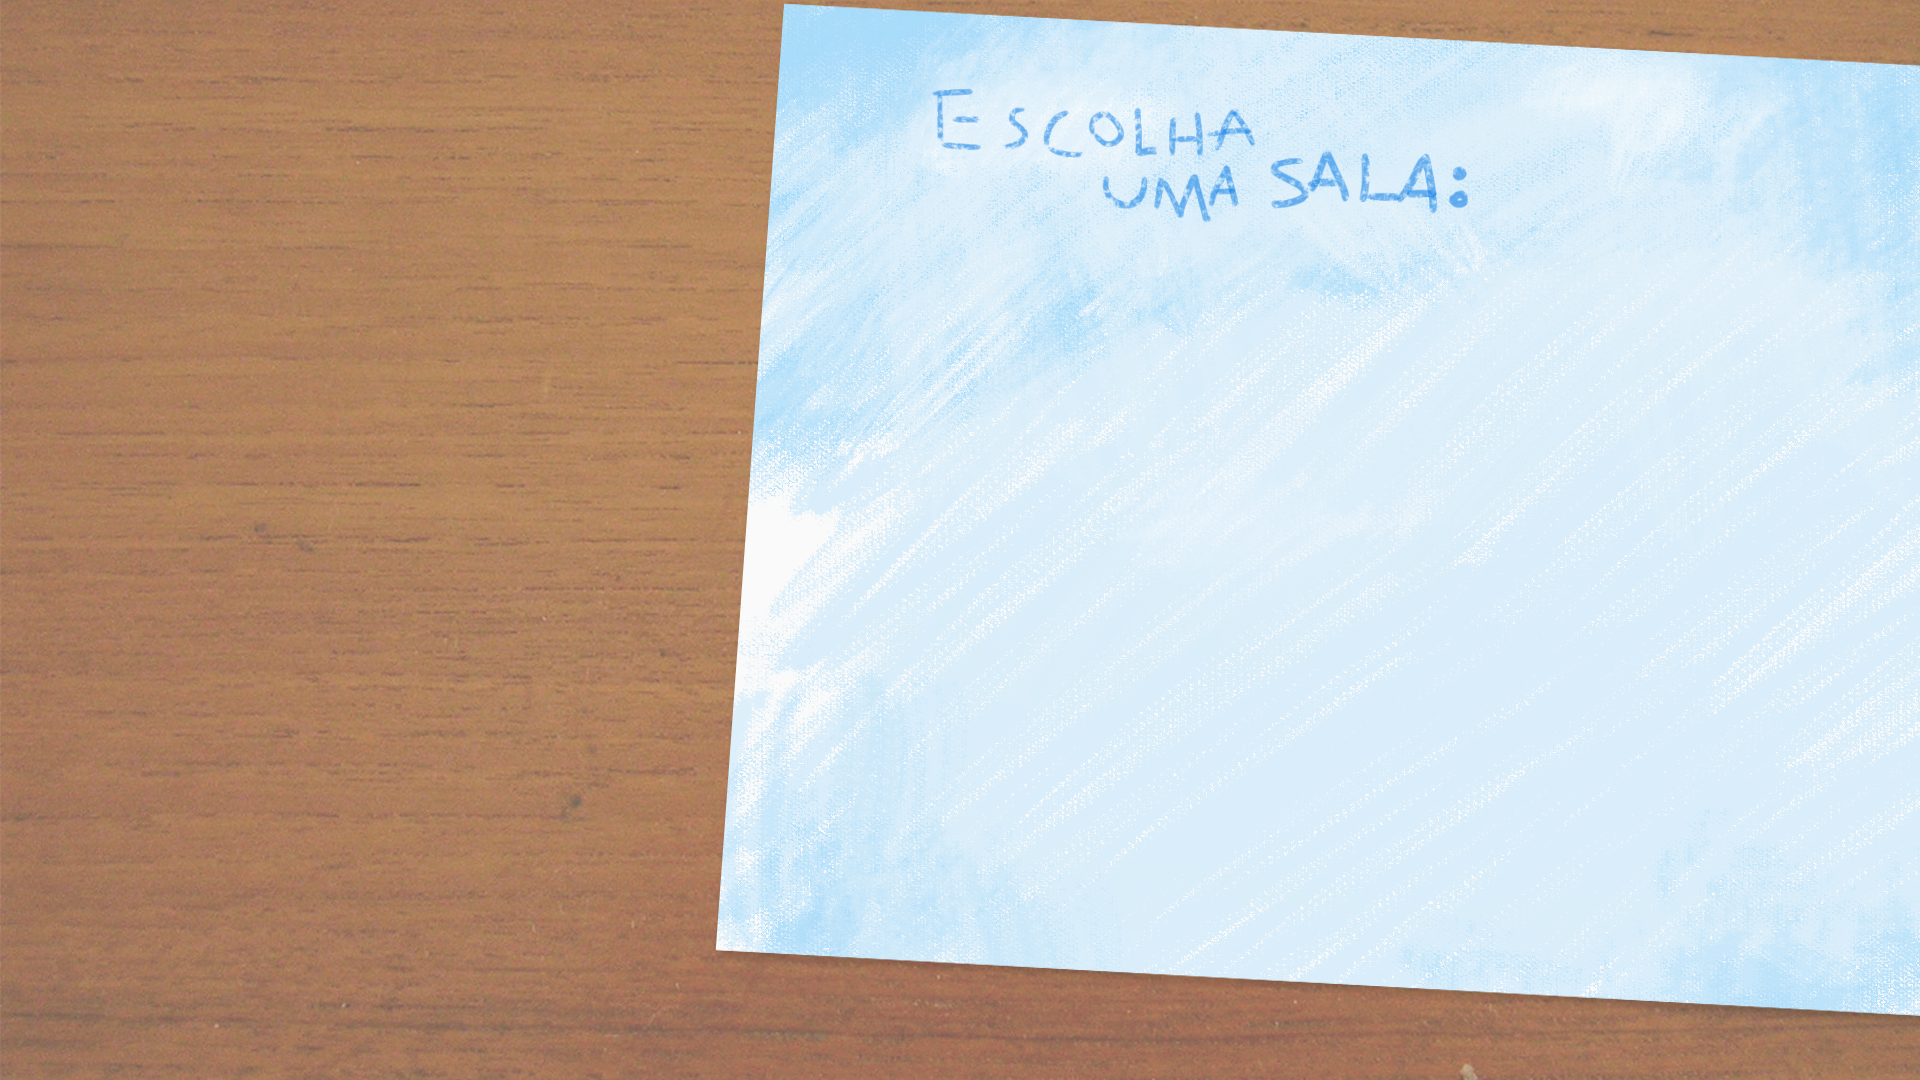 ESCOLHA
UMA SALA: